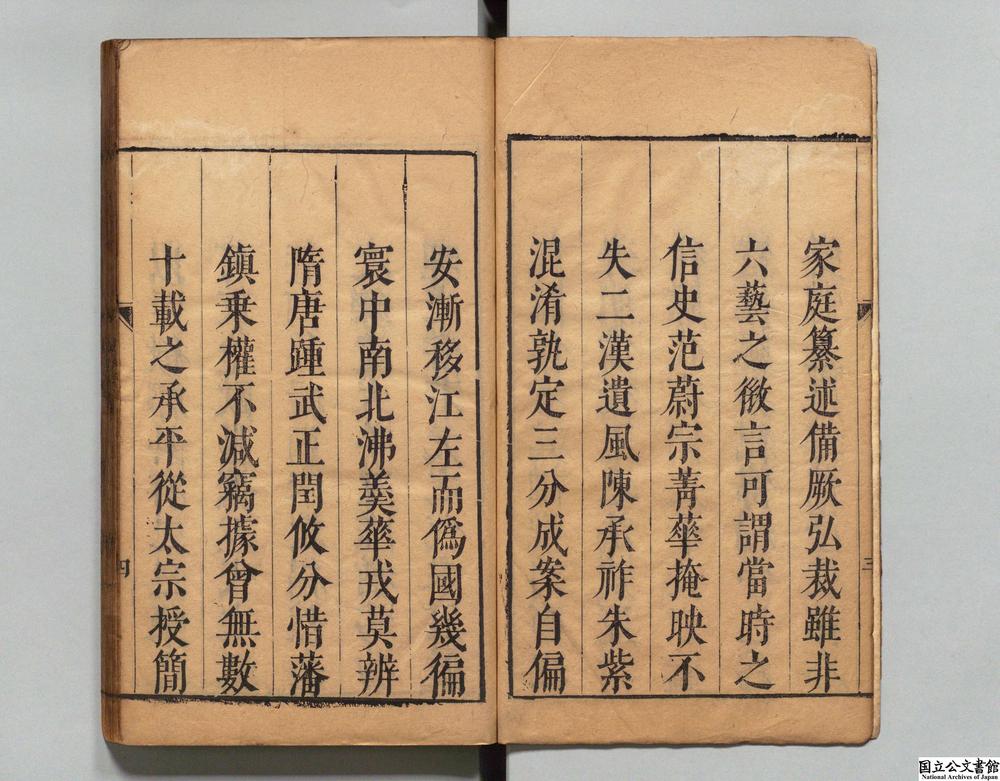 家庭纂述備厥弘裁雖非
六藝之微言可謂當時之
信史范蔚宗菁華掩映不
失二漢遺風陳承祚朱紫
混淆孰定三分成案自偏
三
安漸移江左而偽國幾徧
寰中南北沸羹華戎莫辨
隋唐踵武正閏攸分惜藩
鎮乗權不減竊據曾無數
十載之承平從太宗授簡
四
国立公文書館
National Archives of Japan